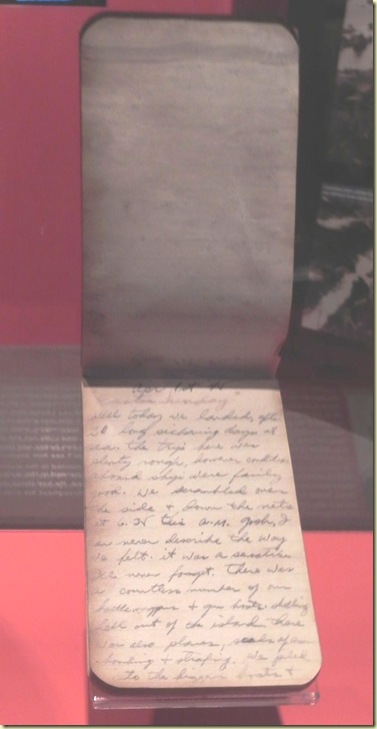 Apr 1st
Easter Sunday
Well today we landed, after
long sickening days at
sea. The trip here was
plenty rough, however conditions
aboard ship were fairly
good. We scrambled over
the side & down the nets
at 6. this A.M. gosh, I
can never describe the way
we felt. it was a sensation
I'll never forget. There was
a countless number of our
battle wagons & gun boats shelling
hell out of the island there
was also planes,
bombing & strafing. We
to the bigger boats &